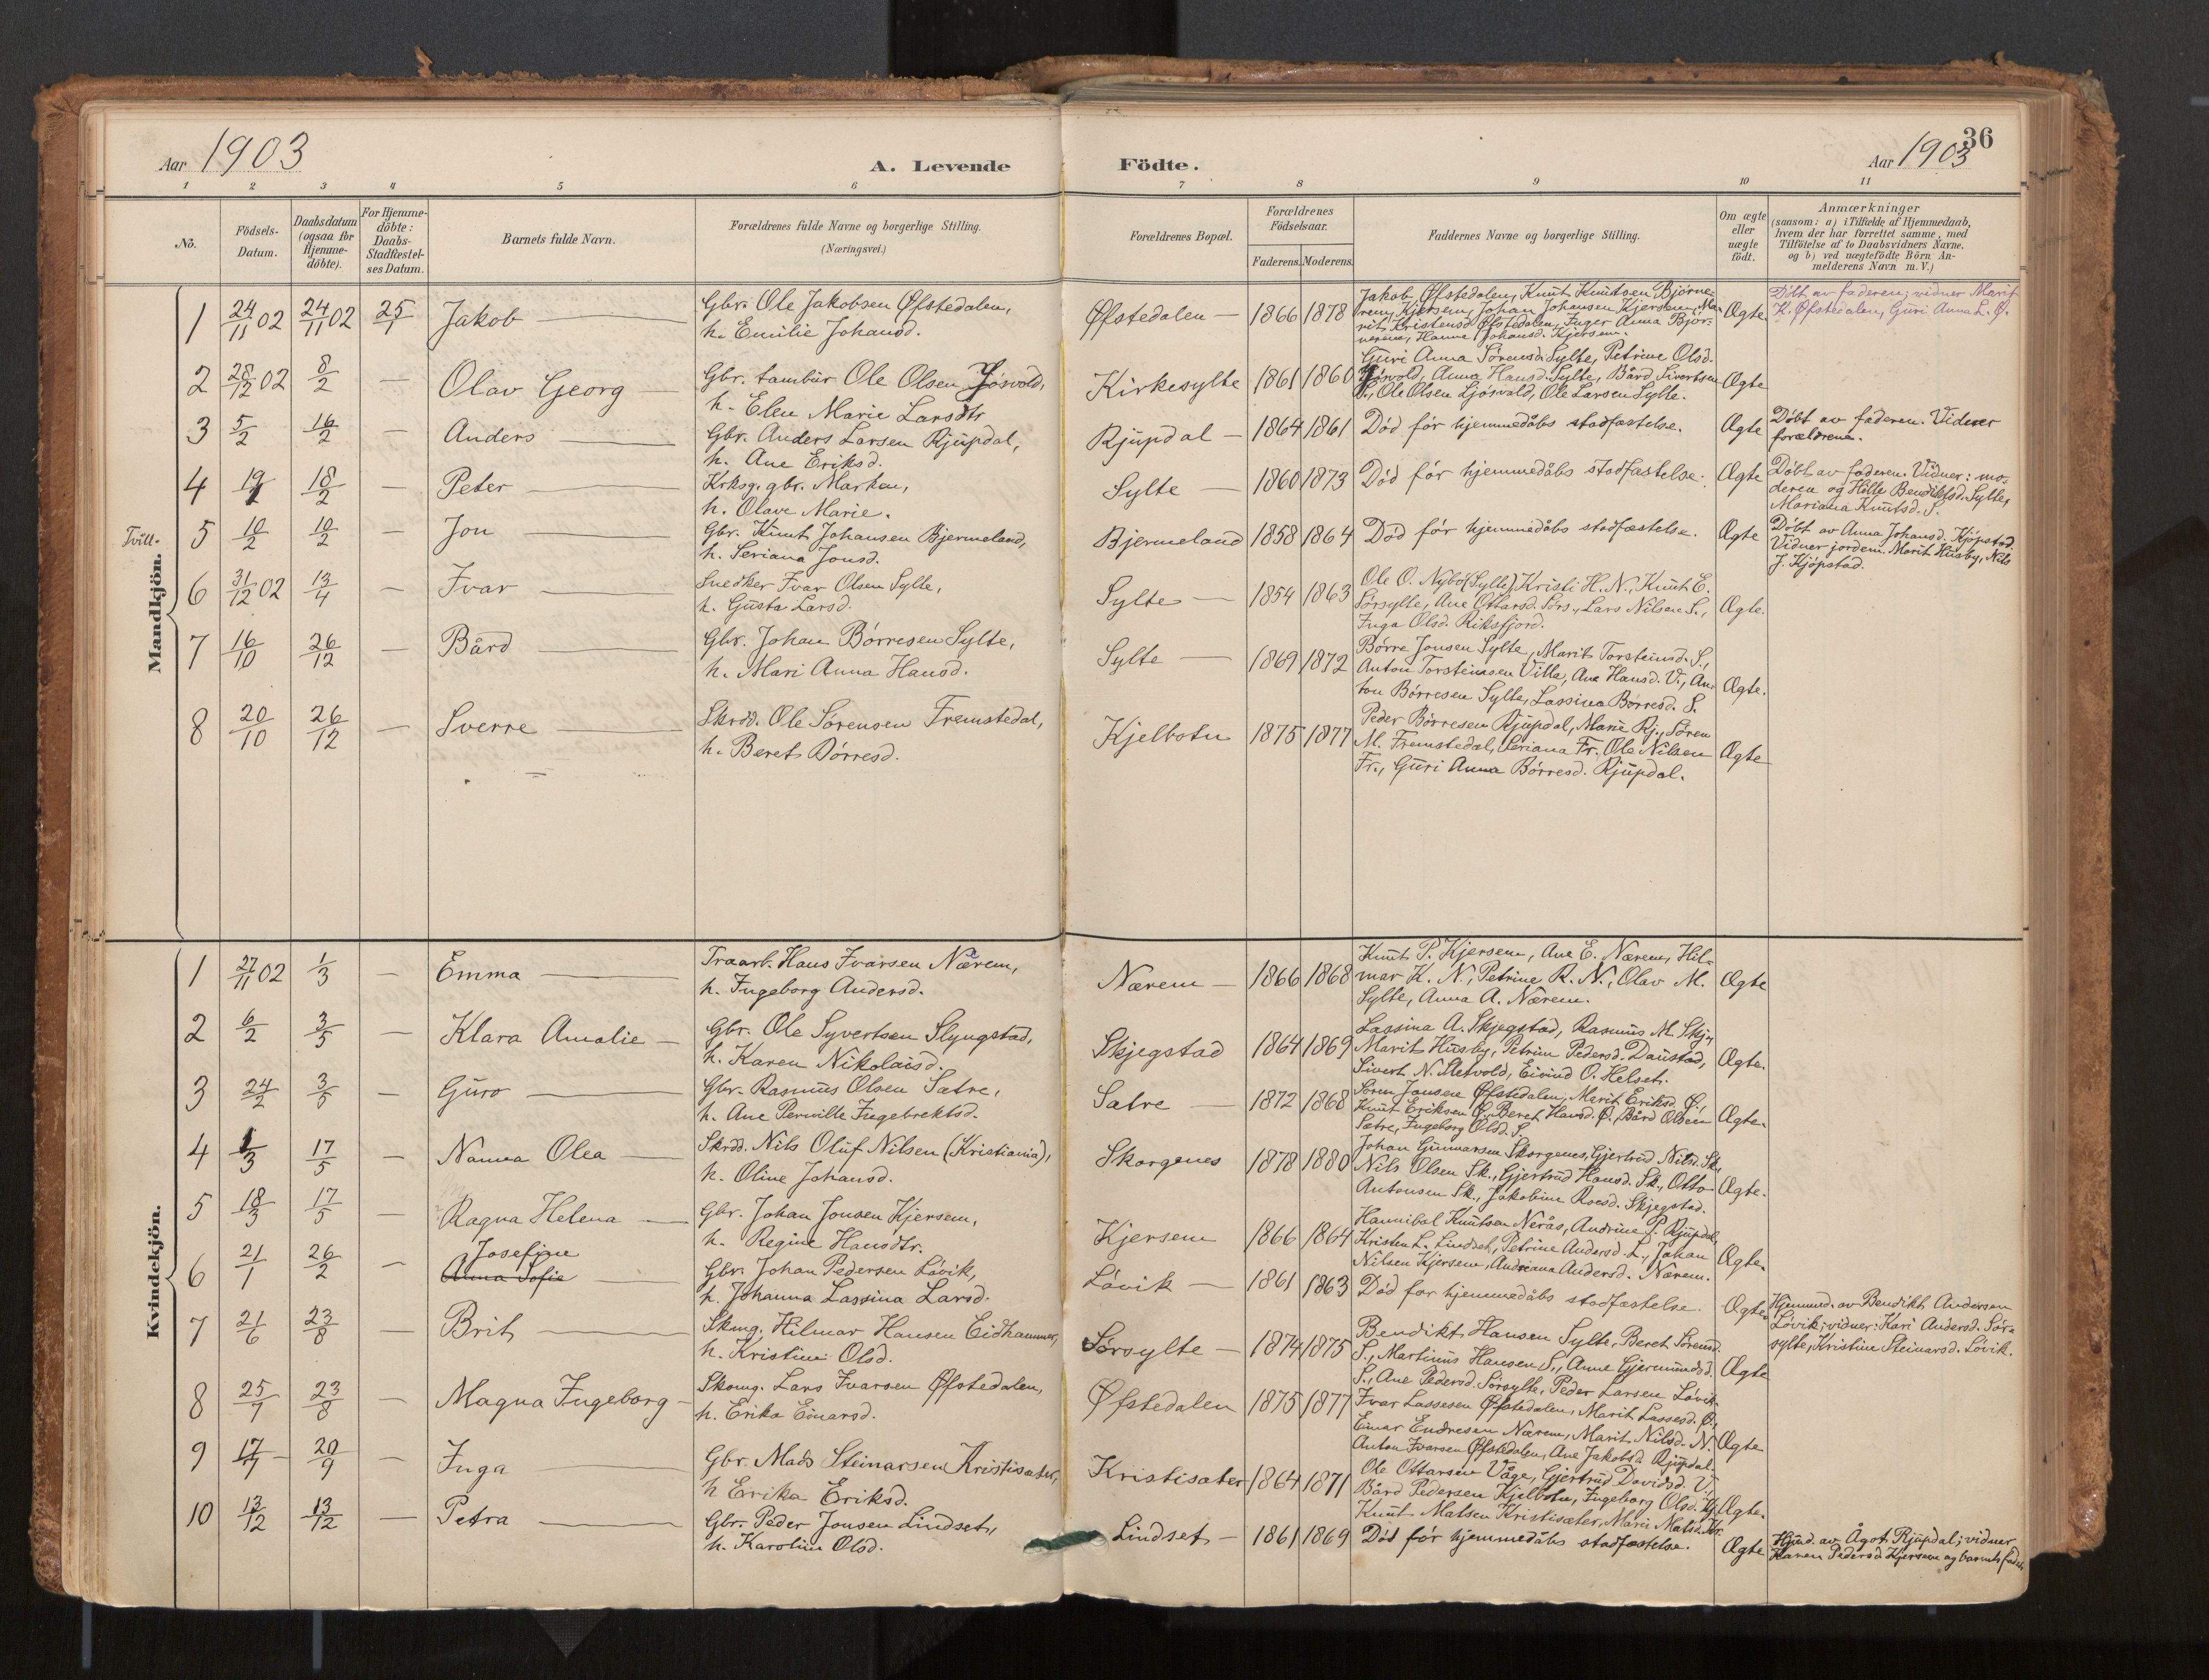 36
Aar 1903
A. Levende Födte.
Aar 1903
1 2 3 4 5 6 7 8 9 10 11
No.
Födsels-Datum.
Daabsdatum (ogsaa for Hjemme-döbte).
For Hjemme-döbte: Daabs-Stadfæstel-ses Datum.
Barnets fulde Navn.
Forældrenes fulde Navne og borgerlige Stilling.
(Næringsvei.)
Forældrenes Bopæl.
Forældrenes Födselsaar.
Faderens. Moderens.
Faddernes Navne og borgerlige Stilling.
Om ægte eller uægte födt.
Anmærkninger
(saasom: a) i Tilfælde af Hjemmedaab,
hvem der har forrettet samme, med
Tilföielse af to Daabsvidners Navne,
og b) ved uægtefödte Börn An-
melderens Navn m. V.)
Mandkjön.
1 24/11 02 24/11 02 25/1 Jakob
Gbr. Ole Jakobsen Øfstedalen,
h. Emilie Johansd.
Øfstedalen 1866 1878
Jakob Øfstedalen, Knut Knutsen Bjørne-
rem, Kjersem, Johan Johansen Kjersem, Ma-
rit Kristensd. Øfstedalen, Inger Anna Bjør-
nerem, Hanna Johansd. Kjersem.
Ægte.
Döbt av faderen; vidner Marit
K. Øfstedalen, Guri Anna L. Ø.
2 28/12 02 8/2 — Olav Georg
Gbr. tambur Ole Olsen Ljösvold,
h. Elen Marie Larsdtr
Kirkesylte 1861 1860
Guri Anna Sörensd. Sylte, Petrine Olsd.
Ljösvold, Anna Hansd. Sylte, Bård Sivertsen
S., Ole Olsen Ljösvold, Ole Larsen Sylte.
Ægte
3 5/2 16/2 — Anders
Gbr. Anders Larsen Rjupdal,
h. Ane Eriksd.
Rjupdal 1864 1861
Död för hjemmedåbs stadfæstelse.
Ægte
Döbt av faderen. Vidner
forældrene.
4 18/2 — Peter
Krksg. gbr. Markus,
h. Olave Marie.
Sylte 1860 1873
Död för hjemmedåbs stadfæstelse.
Ægte
Döbt av faderen. Vidner: mo-
deren og Hilte Bendiktsd. Sylte,
Mariana Knutsd. S.
Tvill.
5 10/2 10/2 — Jon
Gbr. Knut Johansen Bjermeland,
h. Seriana Jonsd.
Bjermeland 1858 1864
Död för hjemmedåbs stadfæstelse.
Ægte
Döbt av Anna Johansd. Kjöpstad.
Vidner jordem. Marit Husby, Nils
J. Kjöpstad.
6 31/12 02 13/4 — Ivar
Snedker Ivar Olsen Sylte,
h. Gusta Larsd.
Sylte 1854 1863
Ole O. Nybö (Sylte), Kristi H. N., Knut E.
Sörsylte, Ane Ottarsd. Sörs., Lars Nilsen S.,
Inga Olsd. Riksfjord.
Ægte.
7 16/10 26/12 — Bård
Gbr. Johan Börresen Sylte,
h. Mari Anna Hansd.
Sylte 1869 1872
Börre Jonsen Sylte, Marit Torsteinsd. S.,
Anton Torsteinsen Villa, Ane Hansd. V., An-
ton Börresen Sylte, Lassina Börresd. S.
Ægte.
8 20/10 26/12 — Sverre
Skrdd. Ole Sörensen Fremstedal,
h. Beret Börresd.
Kjelbotn 1875 1877
Peder Börresen Rjupdal, Marie Rj., Sören
M. Fremstedal, Seriana Fr. Ole Nilsen
Fr., Guri Anna Börresd. Rjupdal.
Ægte
Kvindekjön.
1 27/11 02 1/3 — Emma
Traarb. Hans Ivarsen Nærem,
h. Ingeborg Andersd.
Nærem 1866 1868
Knut P. Kjersem, Ane E. Nærem, Hil-
mar K. N., Petrine R. N., Olav M.
Sylte, Anna A. Nærem.
Ægte
2 6/2 3/5 — Klara Amalie
Gbr. Ole Syvertsen Slyngstad,
h. Karen Nikolaisd.
Skjegstad 1864 1869
Lassina A. Skjegstad, Rasmus M. Skj.,
Marit Husby, Petrine Pedersd. Daustad,
Sivert N. Sletvold, Eivind O. Helset.
Ægte.
3 24/2 3/5 — Guro
Gbr. Rasmus Olsen Sætre,
h. Ane Pernille Ingebrektsd.
Sætre 1872 1868
Sören Jonsen Øfstedalen, Marit Eriksd. Ø.,
Knut Eriksen Ø., Beret Hansd. Ø., Bård Olsen
Sætre, Ingeborg Olsd. S.
Ægte.
4 1/3 17/5 — Nanna Olea
Skrdd. Nils Oluf Nilsen (Kristiania),
h. Oline Johansd.
Skorgenes 1878 1880
Johan Gunnarsen Skorgenes, Gjertrud Nilsd. Sk.,
Nils Olsen Sk., Gjertrud Hansd. Sk., Otto
Antonsen Sk., Jakobine Roesd. Skjegstad.
Ægte.
5 18/3 17/5 — Ragna Helena
Gbr. Johan Jonsen Kjersem,
h. Regine Hansdtr.
Kjersem 1866 1864
Hannibal Knutsen Nerås, Andrine P. Rjupdal,
Kristen L. Lindset, Petrine Andersd. L., Johan
Nilsen Kjersem, Andriana Andersd. Nærem.
Ægte.
6 21/1 26/2 — Josefine
Anna Sofie
Gbr. Johan Pedersen Lövik,
h. Johanna Lassina Larsd.
Lövik 1861 1863
Död för hjemmedåbs stadfæstelse.
Ægte
Hjemmed. av Bendikt Andersen
Lövik; vidner: Kari Andersd. Sör-
sylte, Kristine Steinarsd. Lövik.
7 21/6 23/8 — Brit
Skmg. Hilmar Hansen Eidhammer,
h. Kristine Olsd.
Sörsylte 1874 1875
Bendikt Hansen Sylte, Beret Sörensd.
S., Martinus Hansen S., Anne Gjermundsd.
S., Ane Pedersd. Sörsylte, Peder Larsen Lövik.
Ægte
8 25/7 23/8 — Magna Ingeborg
Skomg. Lars Ivarsen Øfstedalen,
h. Erika Einarsd.
Øfstedalen 1875 1877
Ivar Lassesen Øfstedalen, Marit Lassesd. Ø.,
Einar Endresen Nærem, Marit Nilsd. N.
Anton Ivarsen Øfstedalen, Ane Jakobsd. Rjupdal.
Ægte
9 17/7 20/9 — Inga
Gbr. Mads Steinarsen Kristisæter,
h Erika Eriksd.
Kristisæter 1864 1871
Ole Ottarsen Våge, Gjertrud Davidsd. V.,
Bård Pedersen Kjelbotn, Ingeborg Olsd. Kj.
Knut Matsen Kristisæter, Mari Matsd. Kr.
Ægte.
10 13/12 13/12 — Petra
Gbr. Peder Jonsen Lindset,
h. Karoline Olsd.
Lindset 1861 1869
Död för hjemmedåbs stadfæstelse.
Ægte
Hjmd. av Ågot Rjupdal; vidner
Karen Pedersd. Kjersem og barnets fader.